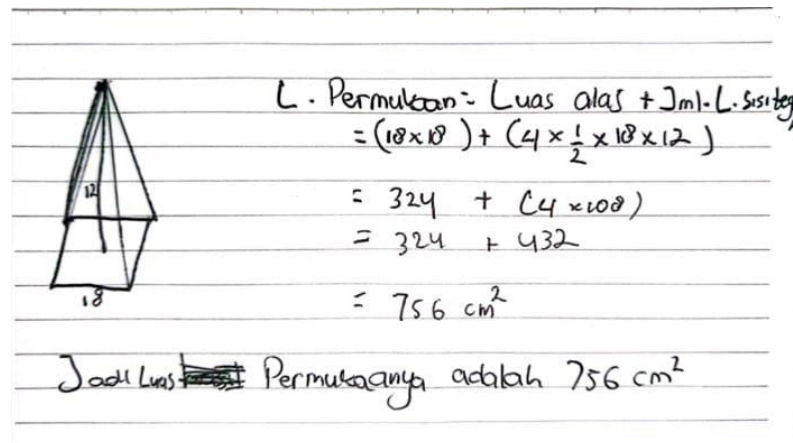 L. Permukaan = Luas alas + Jml. L. sisi teg
= (18 x 18) + (4 x 1/2 x 18 x 12)
12
= 324 + (4 x 108)
= 324 + 432
18
= 756 cm²
Jadi Luas Permukaanya adalah 756 cm²